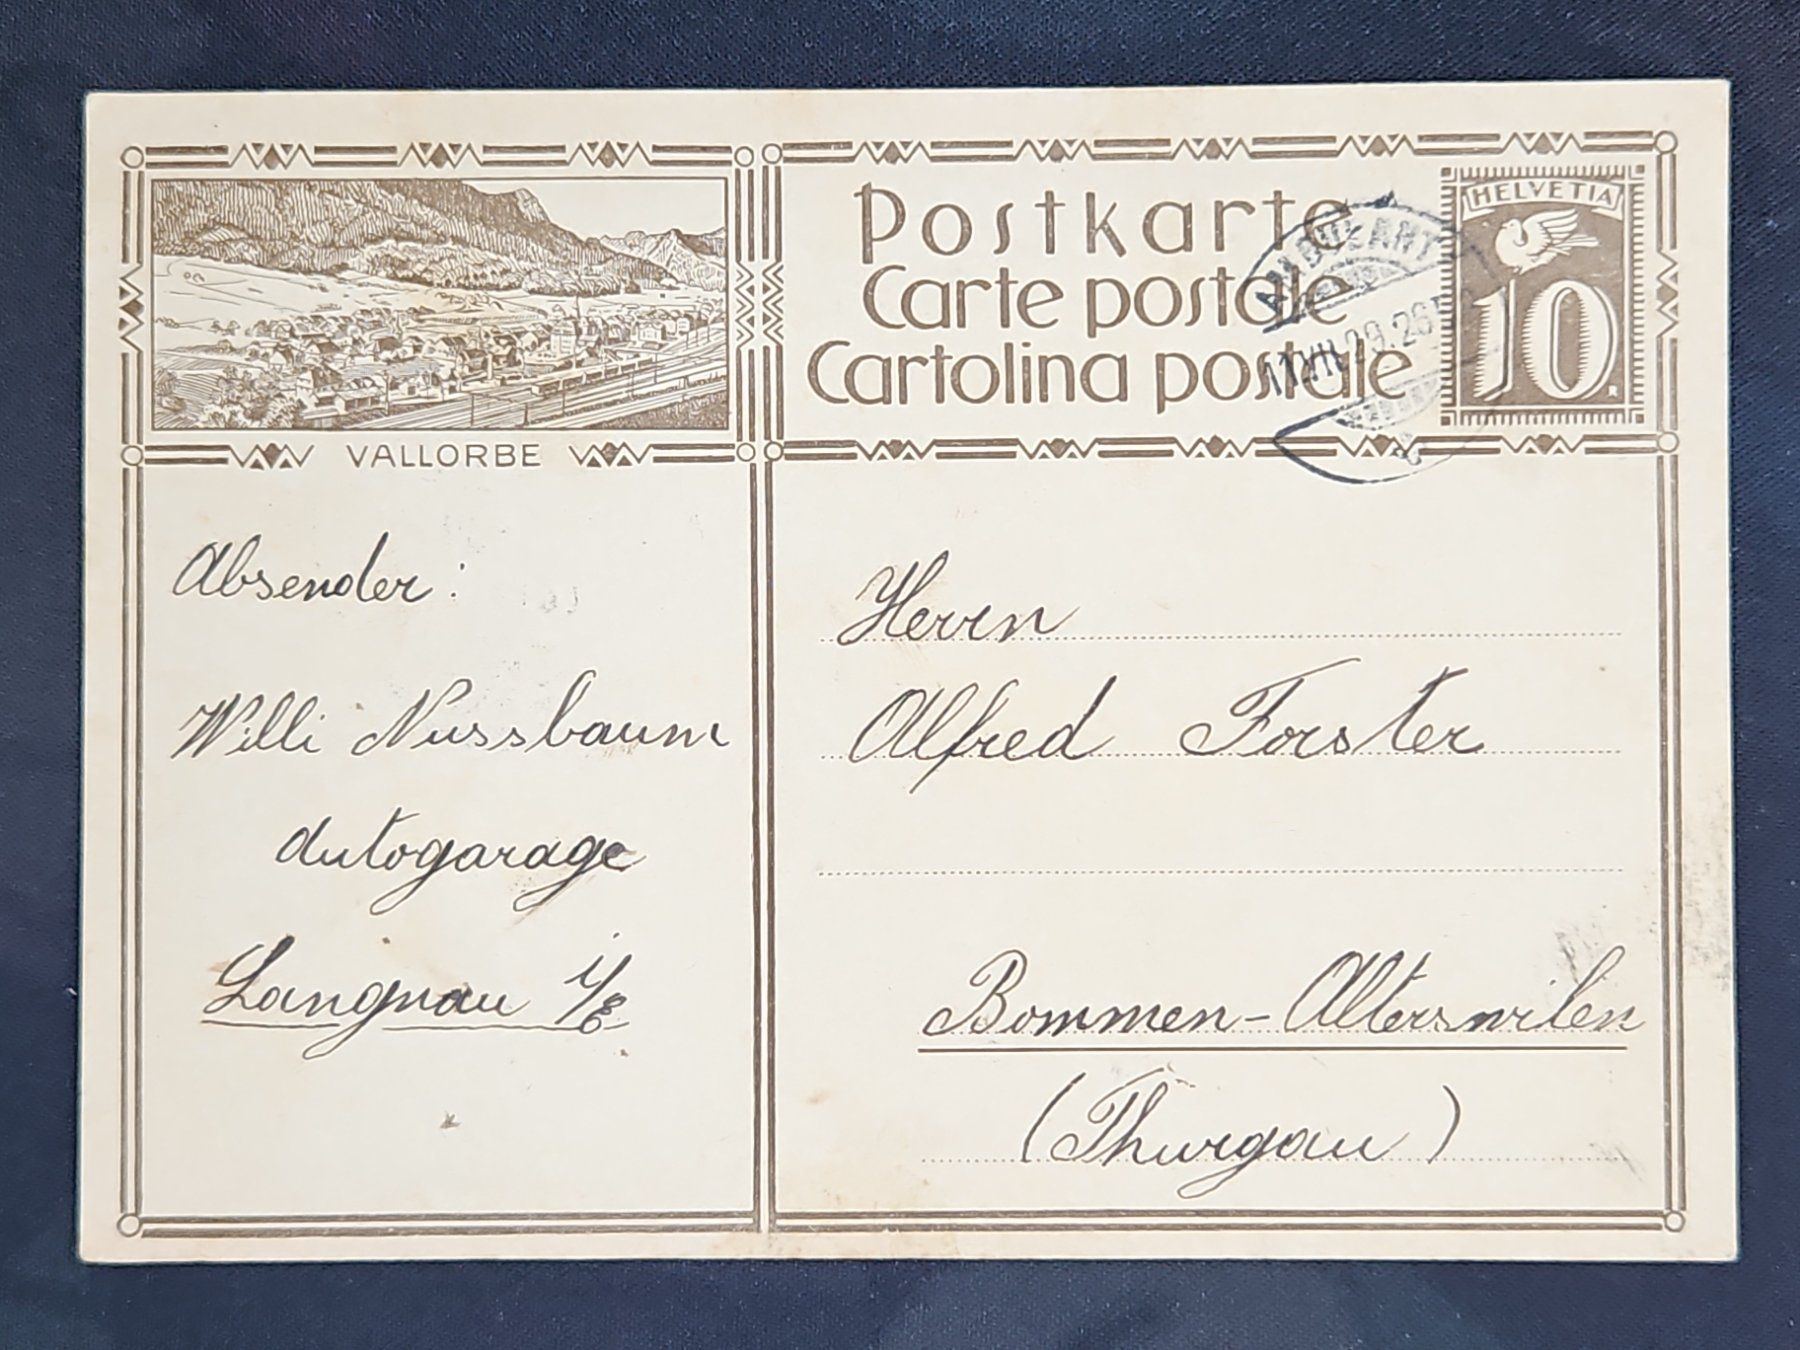 Postkarte
Carte postale
Cartolina postale
HELVETIA
10
AMBULANT
VALLORBE
Absender:
Willi Nussbaum
Autogarage
Langnau i/E
Herrn
Alfred Forster
Bommen-Alterswilen
(Thurgau)